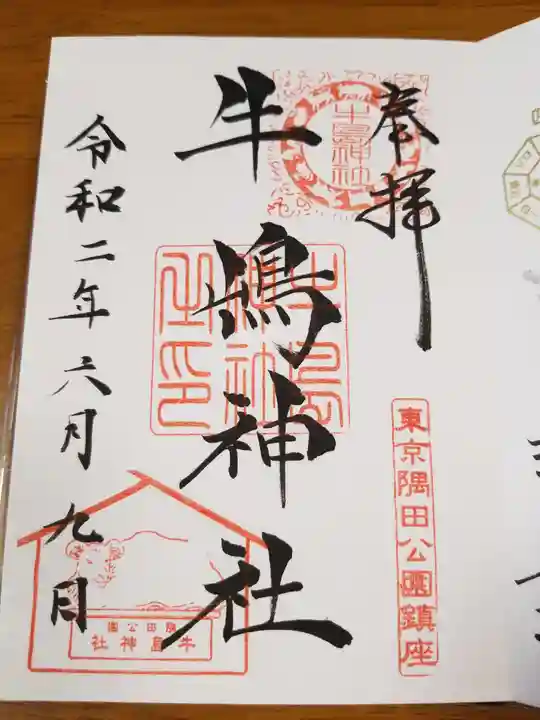 奉拝
東京隅田公園鎮座
牛嶋神社
牛島神社
牛島神社之印
隅田公園
牛島神社
令和二年六月九日